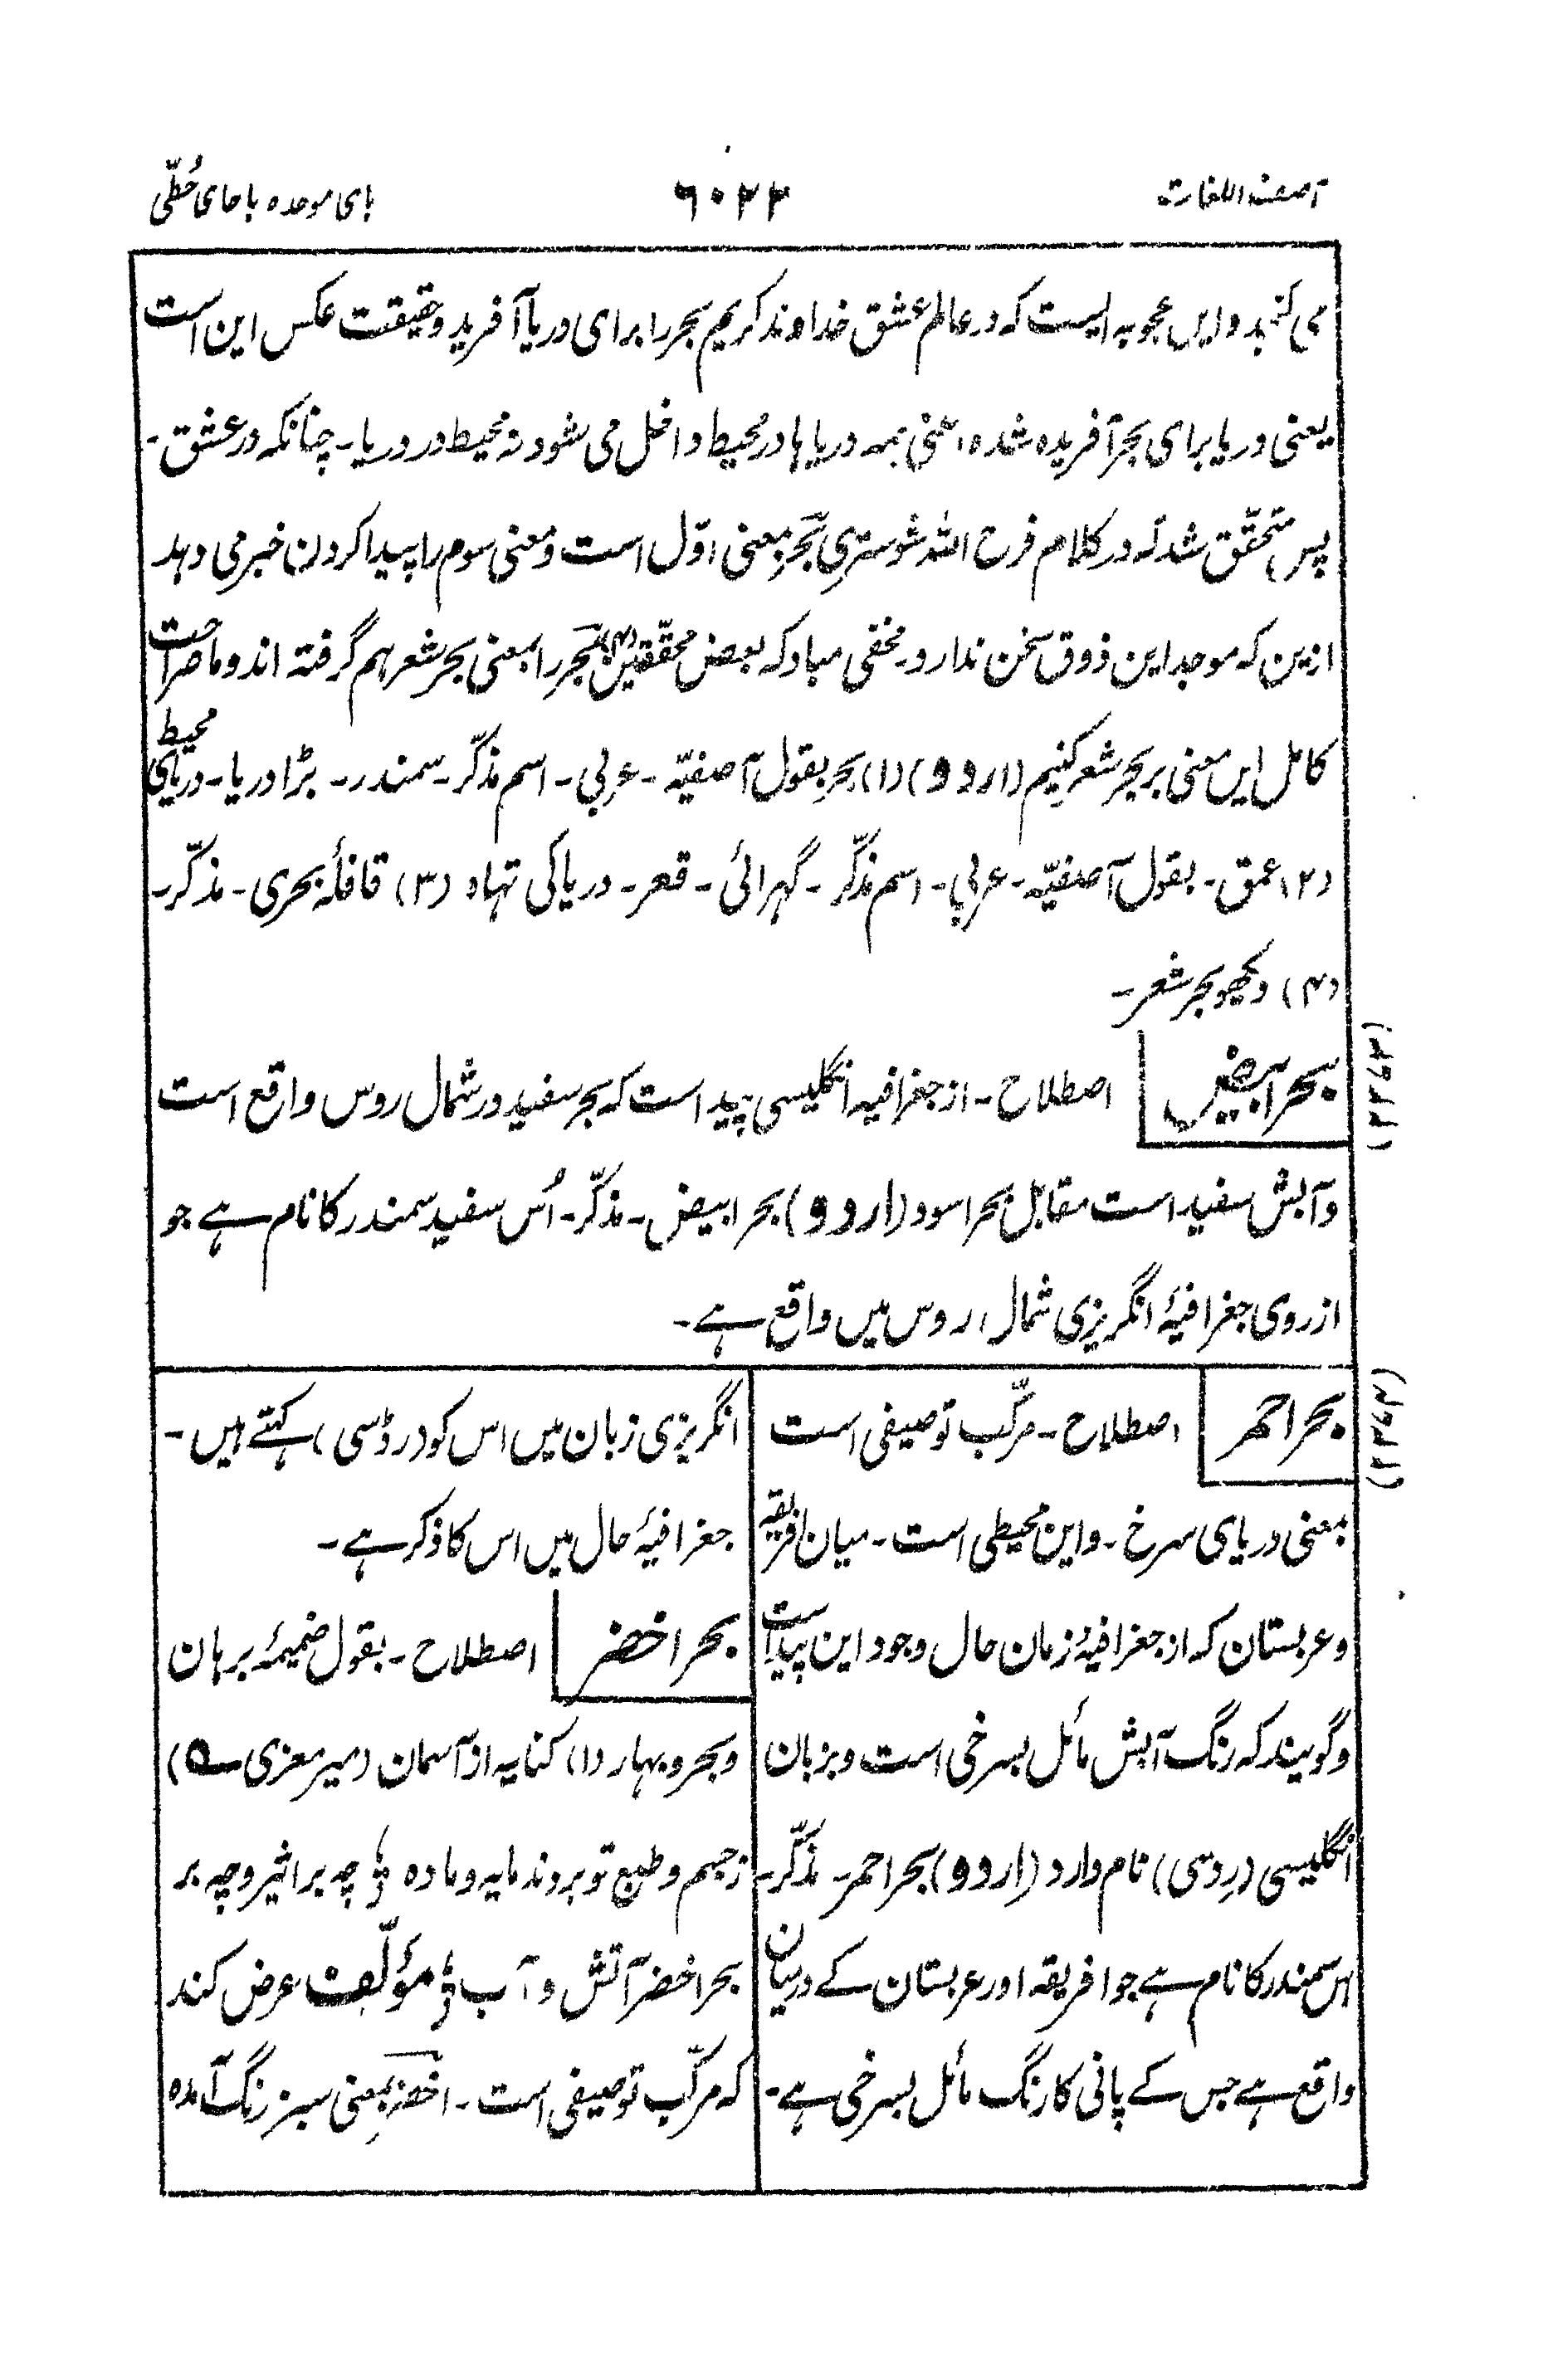 آصف اللغات
٦٠٢٢
بای موحده با حای حُطّی
می کنبد و این عجوبه ایست که در عالم عشق خداوند کریم بحر را برای دریا آفرید و حقیقت عکس این است
یعنی دریا برای بحر آفریده شده یعنی همه دریاها در محیط داخل می شود نه محیط در دریا۔ چنانکه در عشق۔
پس متحقّق شد که در کلام فرح اللّه شوستری بحر بمعنی اوّل است و معنی سوم را پیدا کردن خبر می دهد
ازین که موجد این ذوق سخن ندارد۔ مخفی مباد که بعض محقّقین (۴) بحر را بمعنی بحر شعر هم گرفته اند و ما صراحت
کامل این معنی بر بحر شعر کنیم (اردو) (۱) بحر بقول آصفیّه۔ عربی۔ اسم مذکّر۔ سمندر۔ بڑا دریا۔ دریای محیط
(۲) عمق۔ بقول آصفیّه۔ عربی۔ اسم مذکّر۔ گہرائی۔ قعر۔ دریا کی تہاہ (۳) قافلۂ بحری۔ مذکّر۔
(۴) دیکھو بحر شعر۔
بحر ابیض اصطلاح۔ از جغرافیه انگلیسی پیداست که بحر سفید در شمال روس واقع است
و آبش سفید است مقابل بحر اسود (اردو) بحر ابیض۔ مذکّر۔ اُس سفید سمندر کا نام ہے جو
از روی جغرافیۂ انگریزی شمال روس میں واقع ہے۔
بحر احمر اصطلاح۔ مرکّب توصیفی است
بمعنی دریای سرخ۔ و این محیطی است۔ میان افریقه
و عربستان که از جغرافیۂ زمان حال وجود این پیداست
و گویند که رنگ آبش مائل بسرخی است و بزبان
انگلیسی (ردسی) نام دارد (اردو) بحر احمر۔ مذکّر۔
اس سمندر کا نام ہے جو افریقہ اور عربستان کے درمیان
واقع ہے جس کے پانی کا رنگ مائل بسرخی ہے۔
انگریزی زبان میں اس کو (رڈسی) کہتے ہیں۔
جغرافیۂ حال میں اس کا ذکر ہے۔
بحر اخضر اصطلاح۔ بقول ضمیمۂ برهان
و بحر و بهار (۱) کنایه از آسمان (میر معزی ۵)
ز جسم و طبع تو بردند مایه و ماده ؛ چه بر اثیر و چه بر
بحر اخضر آتش و آب ؛ مؤلّف عرض کند
که مرکّب توصیفی است۔ اخضر بمعنی سبز رنگ آمده